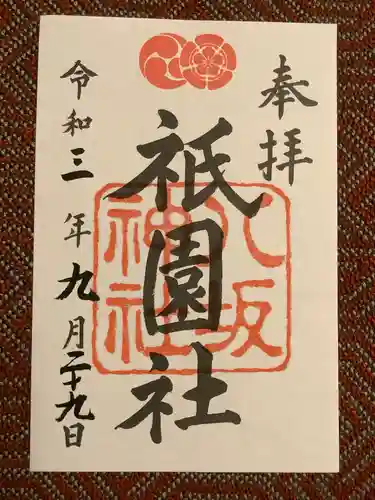 奉拝
八坂
神社
祇園社
令和三年九月二十九日